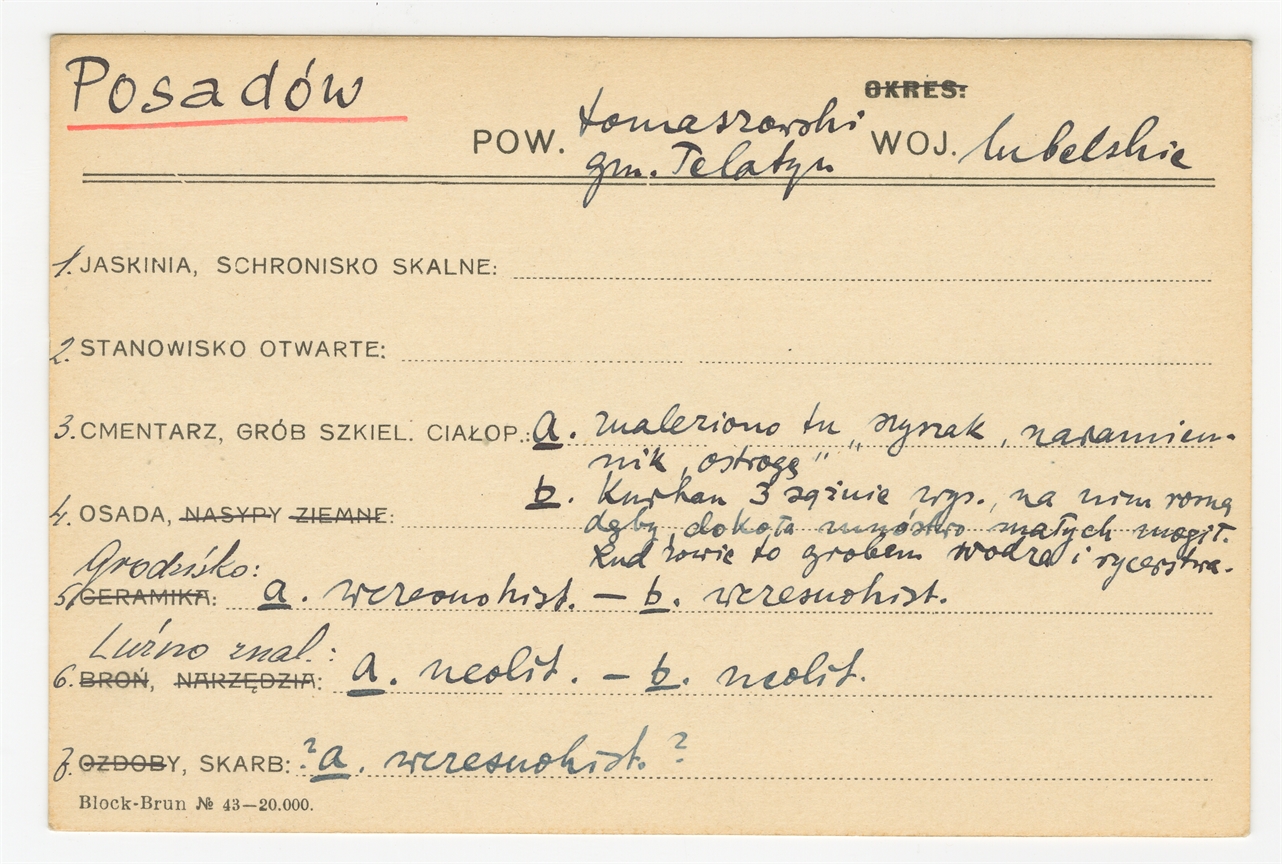 Posadów
OKRES:
POW. tomaszowski WOJ. lubelskie
gm. Telatyn
1. JASKINIA, SCHRONISKO SKALNE:
2. STANOWISKO OTWARTE:
3. CMENTARZ, GRÓB SZKIEL. CIAŁOP.: a. znaleziono tu „szyszak, naramien-
nik, ostrogę"
b. Kurhan 3 sążnie wys., na nim rosną
4. OSADA, NASYPY ZIEMNE: dęby, dokoła mnóstwo małych mogił.
Lud zowie to grobem wodza i rycerstwa.
Grodzisko:
5. CERAMIKA: a. wczesnohist. – b. wczesnohist.
Luźno znal.:
6. BROŃ, NARZĘDZIA: a. neolit. – b. neolit.
7. OZDOBY, SKARB: ? a. wczesnohist. ?
Block-Brun № 43—20.000.